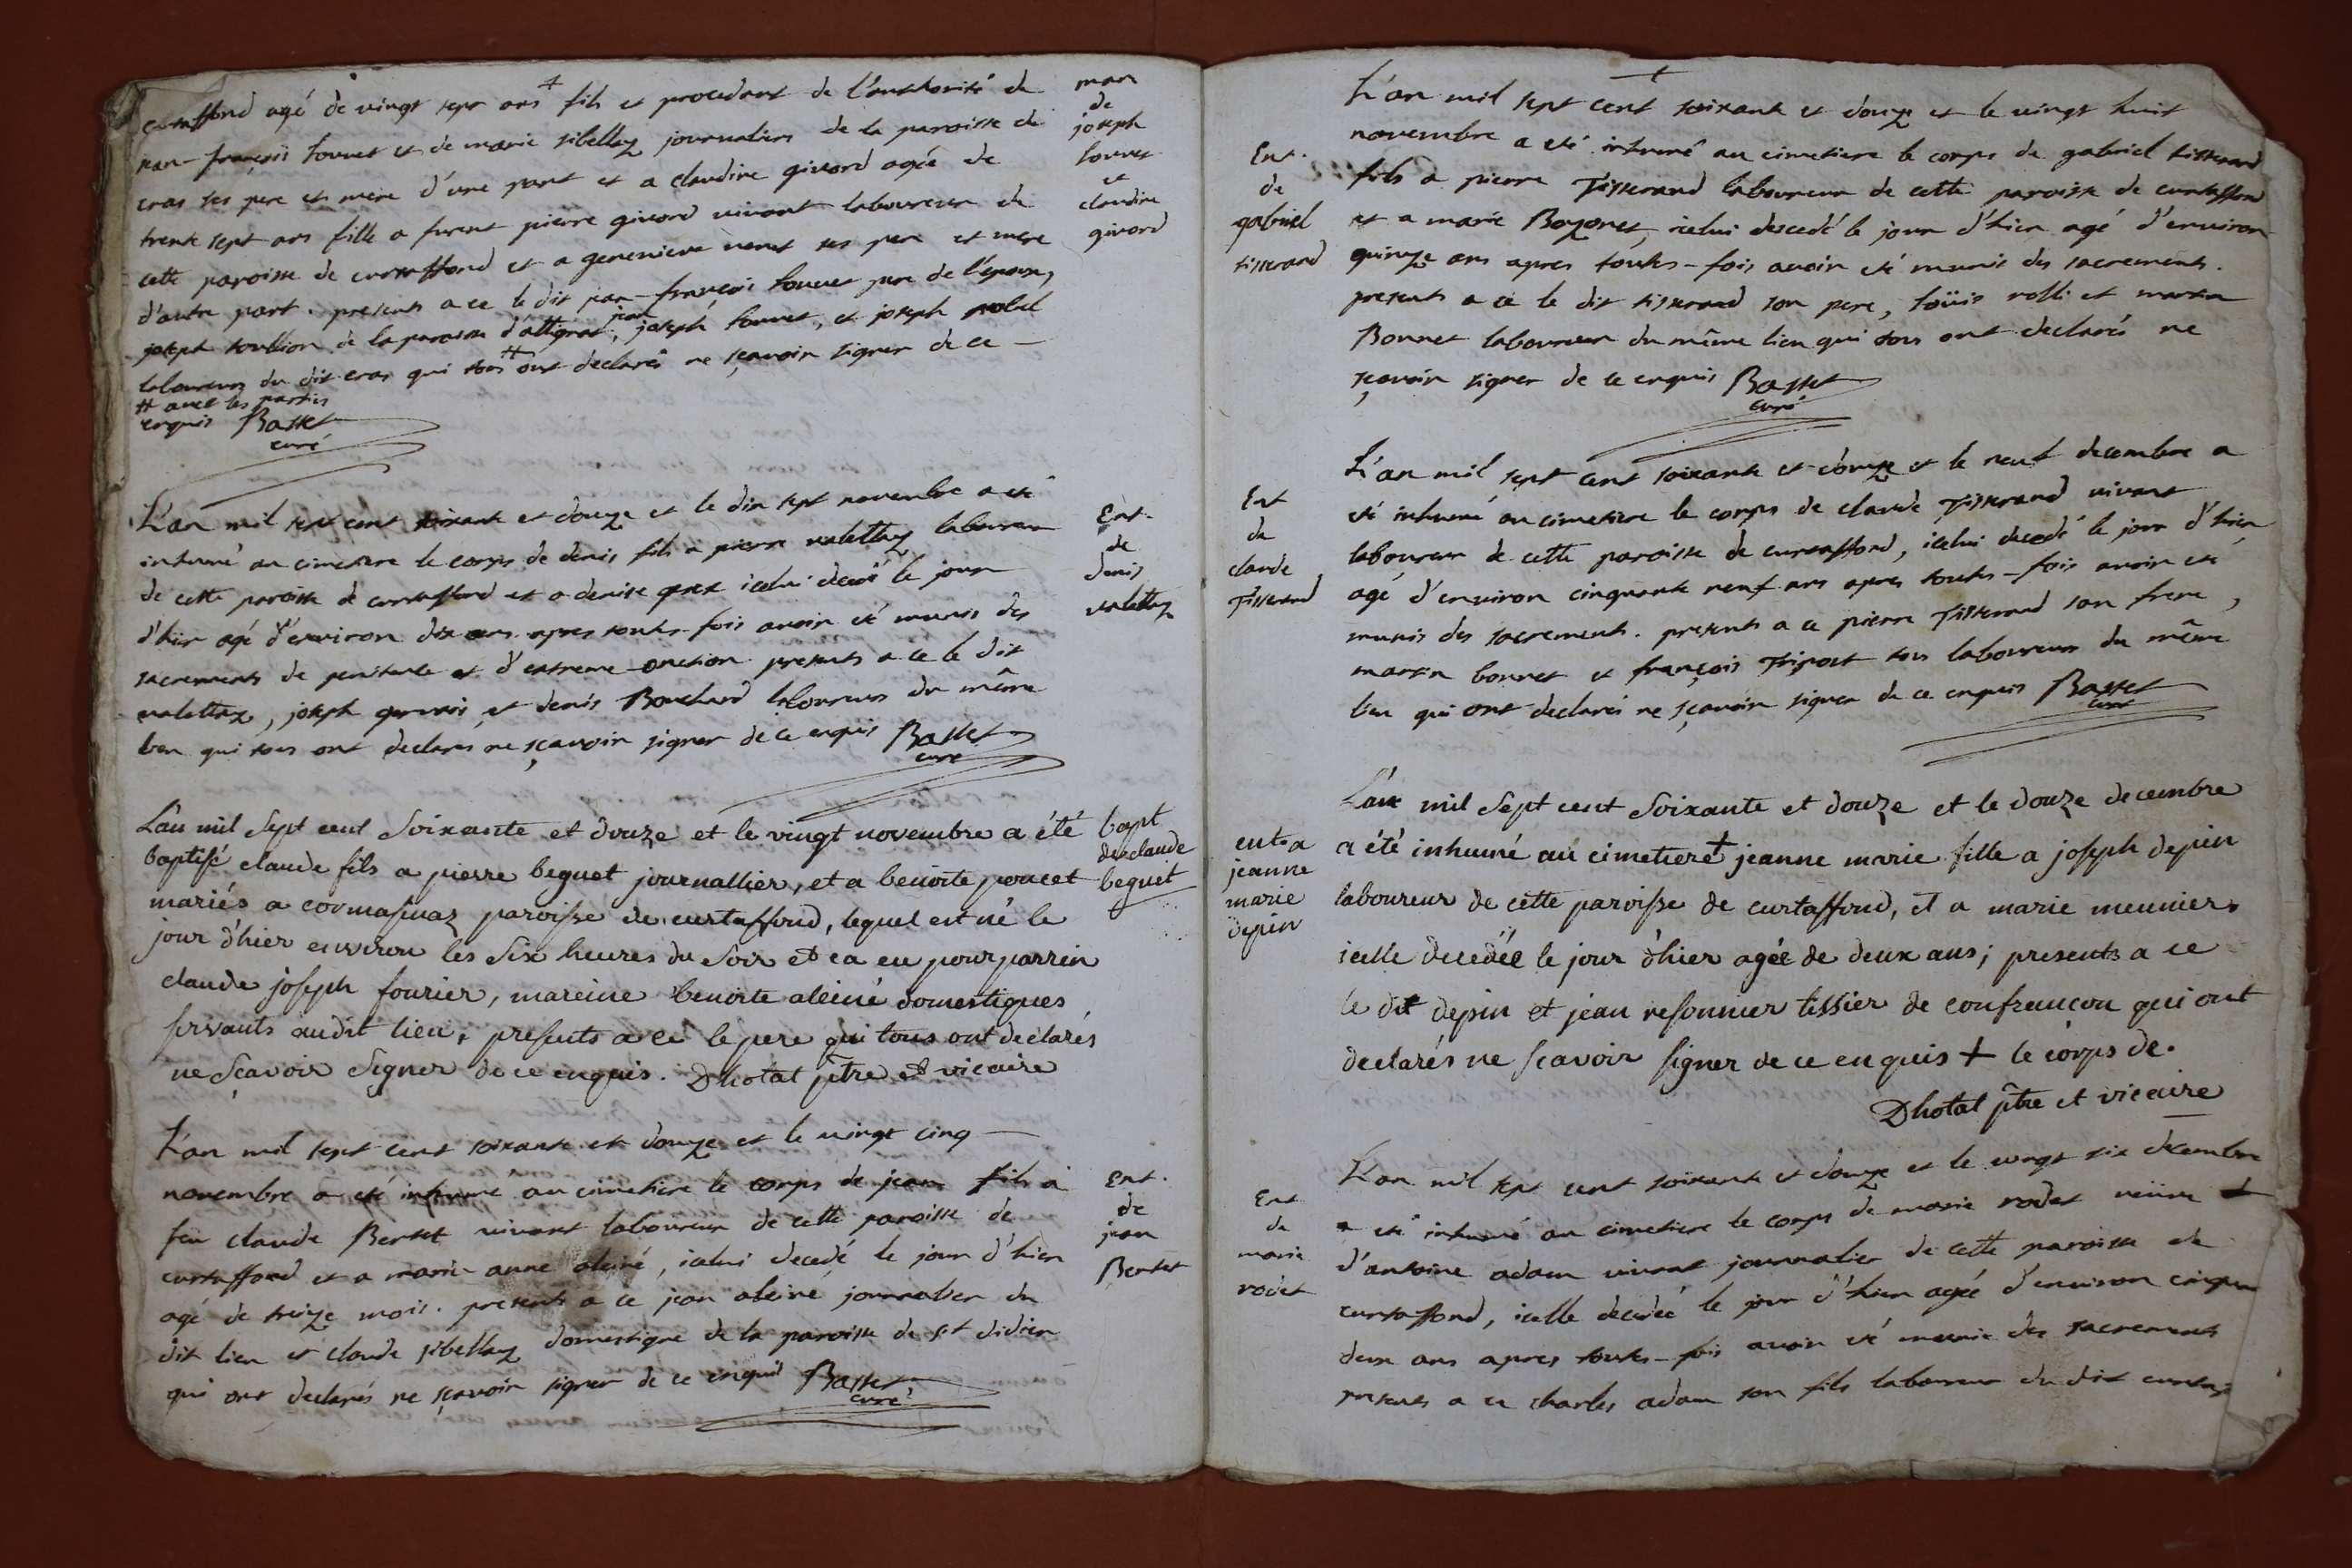 curtaffond agé de vingt sept ans + fils et procedant de l'authorité de
jean-françois fouvet et de marie sibellaz journaliers de la paroisse de
cras ses pere et mere d'une part et a claudine givord agée de
trente sept ans fille a furent pierre givord vivant laboureur de
cette paroisse de curtaffond et a genevieve venet ses pere et mere
d'autre part. presents a ce le dit jean-françois fouvet pere de l'epoux,
joseph soullion de la paroisse d'attignat, jean joseph fouvet, et joseph
laboureurs du dit cras qui tous # ont declarés ne sçavoir signer de ce
# avec les parties
enquis Basset
curé
mar
de
joseph
fouvet
et
claudine
givord
L'an mil sept cent soixante et douze et le dix sept novembre a eté
inhumé au cimetiere le corps de denis fils a pierre valettaz laboureur
de cette paroisse de curtaffond et a denise icelui decedé le jour
d'hier agé d'environ dix ans apres toutes-fois avoir eté munis des
sacrements de penitence et d'extreme-onction presents a ce le dit
valettaz, joseph gervais et denis Bouchard laboureurs du même
lieu qui tous ont declarés ne sçavoir signer de ce enquis Basset
curé
Ent.
de
denis
valettaz
L'an mil sept cent soixante et douze et le vingt novembre a été
baptisé claude fils a pierre beguet journallier, et a benoite poncet
mariés a cormasuaz paroisse de curtaffond, lequel est né le
jour d'hier environ les six heures du soir et a eu pour parrin
claude joseph fourier, mareine benoite aleiné domestiques
servants audit lieu, presents a ce le pere qui tous ont declarés
ne sçavoir signer de ce enquis. Dhotal ptre et vicaire
bapt
de claude
beguet
L'an mil sept cent soixante et douze et le vingt cinq
novembre a eté inhumé au cimetiere le corps de jean fils a
feu claude Bertet vivant laboureur de cette paroisse de
curtaffond et a marie anne aleiné, icelui decedé le jour d'hier
agé de treize mois. presents a ce jean aleiné journalier du
dit lieu et claude sibellaz domestique de la paroisse de st didier
qui ont declarés ne sçavoir signer de ce enquis Basset
curé
Ent.
de
jean
Bertet
+
L'an mil sept cent soixante et douze et le vingt huit
novembre a eté inhumé au cimetiere le corps de gabriel tisserand
fils a pierre Tisserand laboureur de cette paroisse de curtaffond
et a marie Bozonet, icelui descedé le jour d'hier agé d'environ
quinze ans apres toutes-fois avoir eté munis des sacrements.
presents a ce le dit tisserand son pere, loüis rolli et martin
Bonnet laboureur du même lieu qui tous ont declarés ne
sçavoir signer de ce enquis Basset
curé
Ent.
de
gabriel
tisserand
L'an mil sept cent soixante et douze et le neuf decembre a
eté inhumé au cimetiere le corps de claude Tisserand vivant
laboureur de cette paroisse de curtaffond, icelui decedé le jour d'hier
agé d'environ cinquante neuf ans apres toutes-fois avoir eté
munis des sacrements. presents a ce pierre Tisserand son frere,
martin bonnet et françois Tripost tous laboureurs du même
lieu qui ont declarés ne sçavoir signer de ce enquis Basset
curé
Ent
de
claude
Tisserand
L'an mil sept cent soixante et douze et le douze decembre
a été inhumé au cimetiere + jeanne marie fille a joseph depin
laboureur de cette paroisse de curtaffond, et a marie meunier
icelle decedée le jour d'hier agée de deux ans; presents a ce
le dit depin et jean resonnier tissier de confrançon qui ont
declarés ne scavoir signer de ce enquis + le corps de.
Dhotal ptre et vicaire
ent. a
jeanne
marie
depin
L'an mil sept cent soixante et douze et le vingt six decembre
a eté inhumé au cimetiere le corps de marie rodet veüve
d'antoine adam vivant journalier de cette paroisse de
curtaffond, icelle decedée le jour d'hier agée d'environ cinquante
deux ans apres toutes-fois avoir eté munie des sacrements
presents a ce charles adam son fils laboureur du dit curtaf
Ent
de
marie
rodet